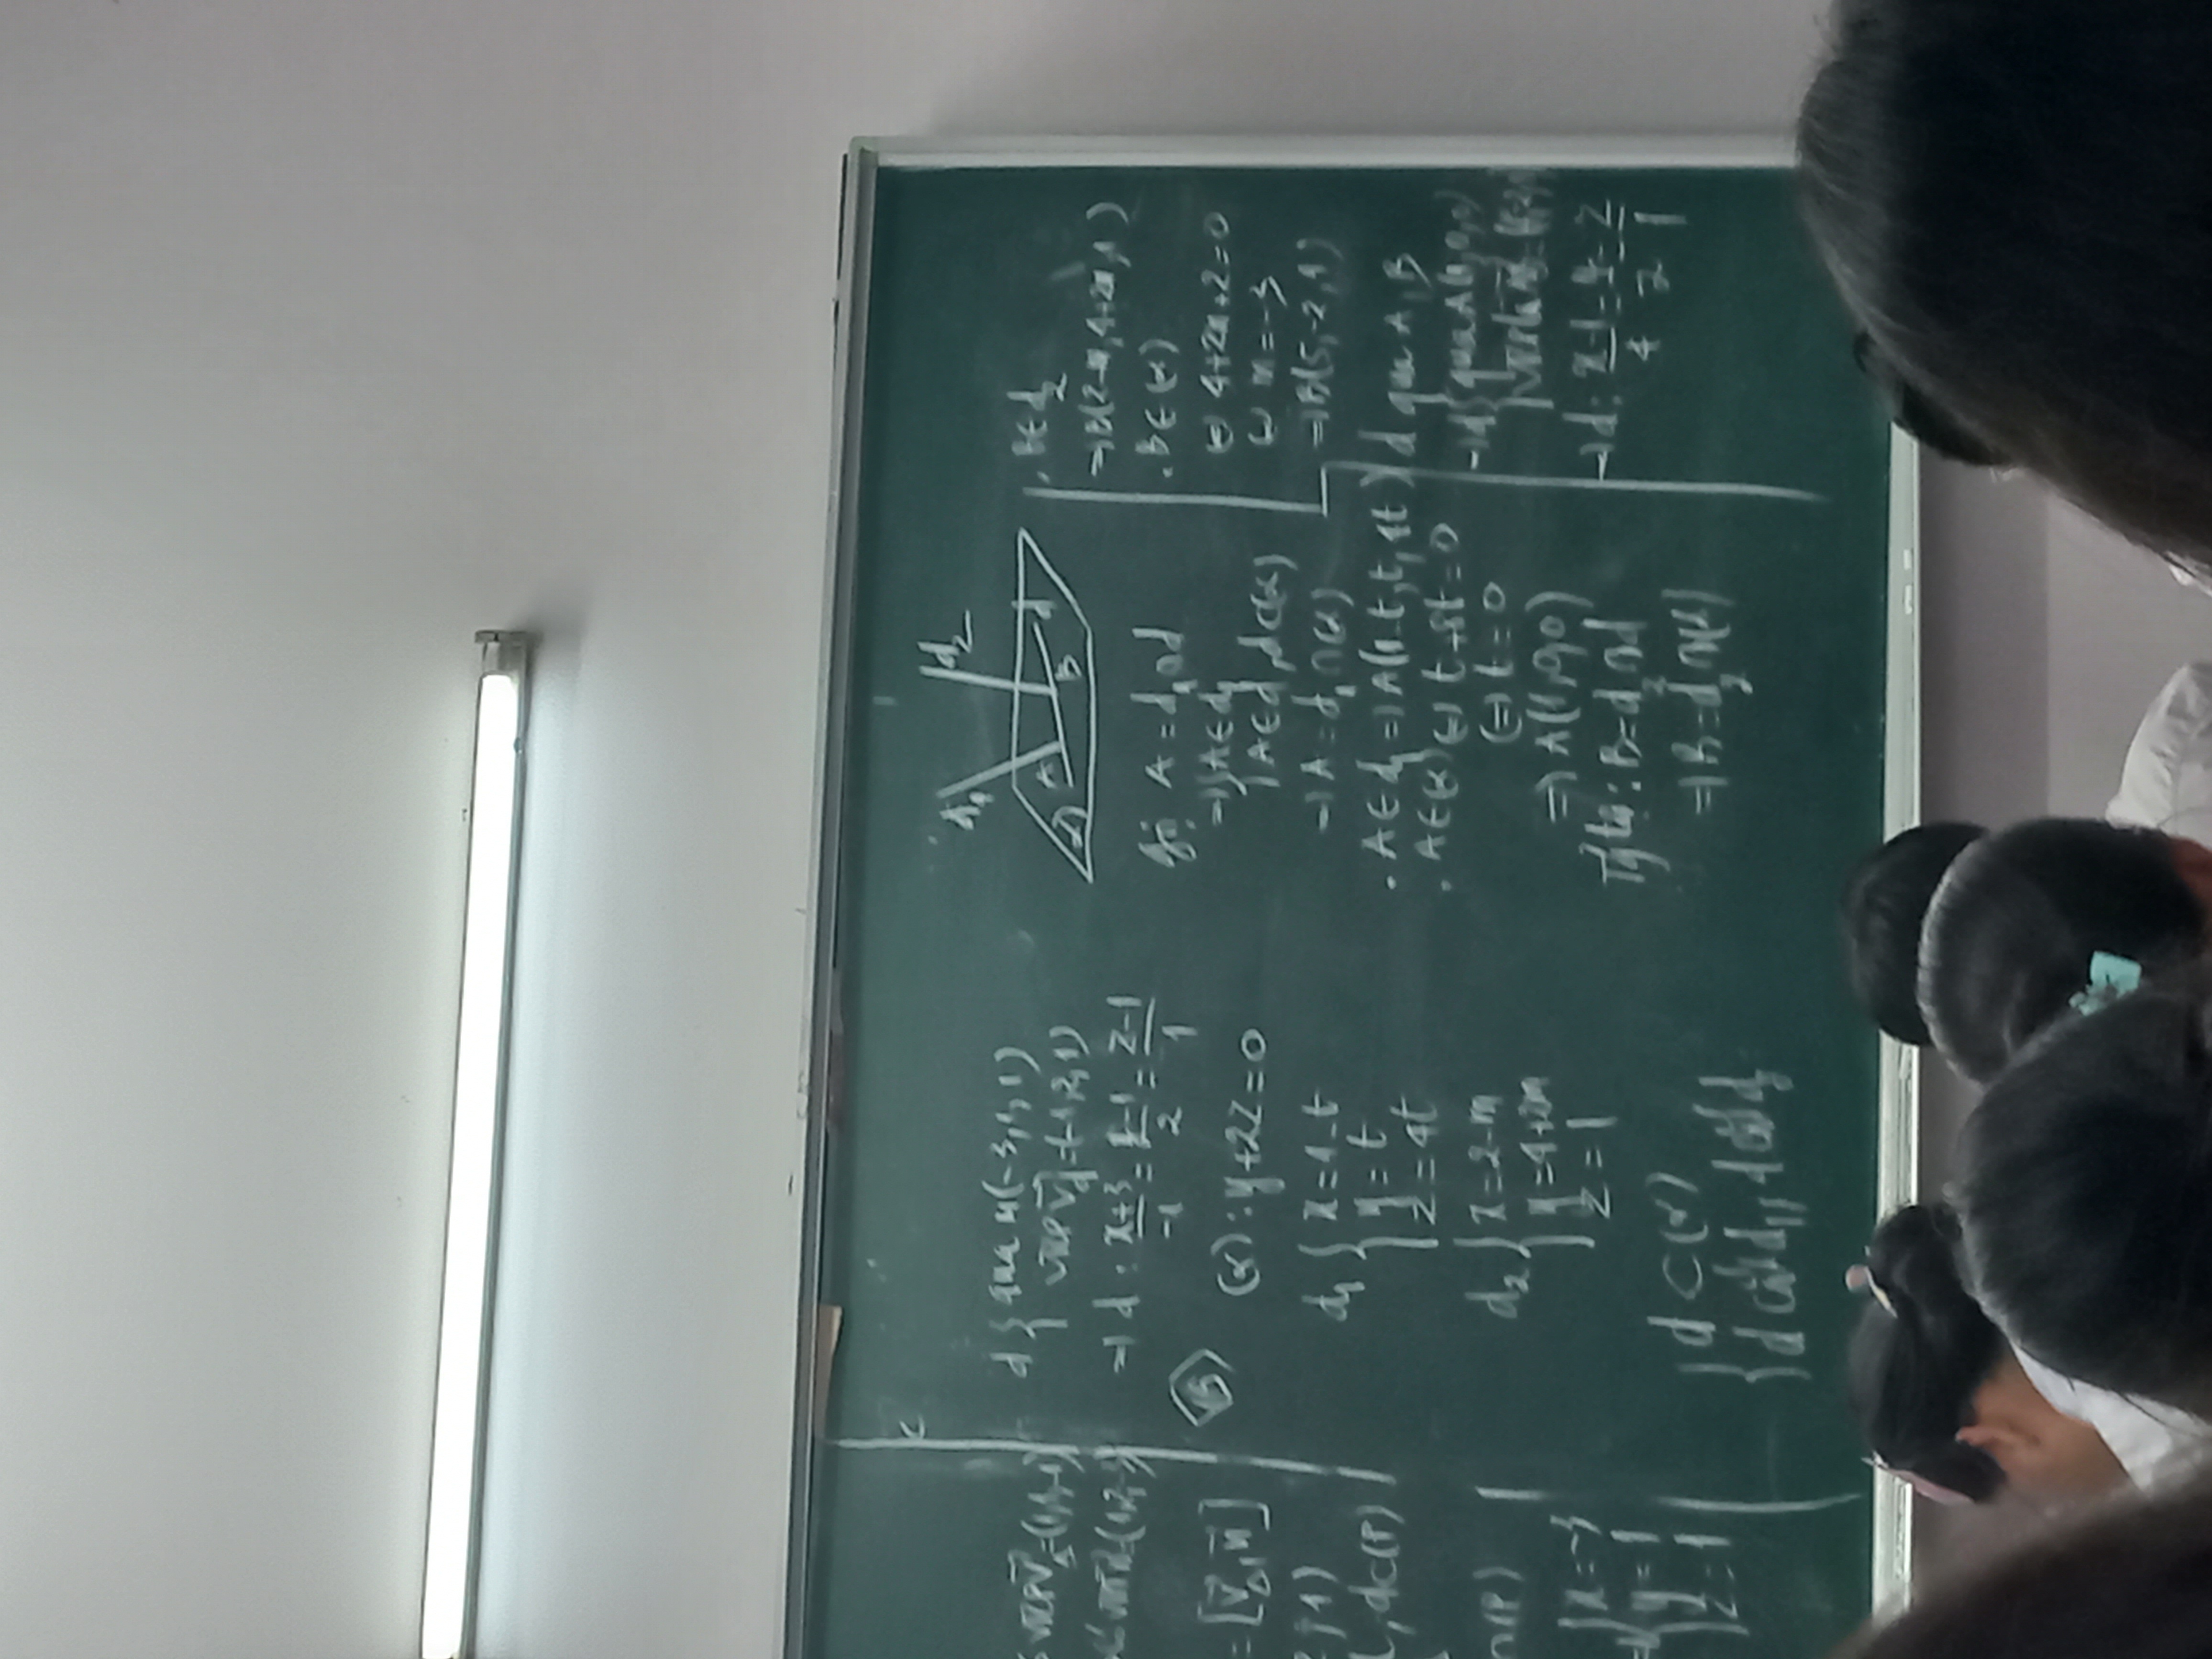 VTCP V⃗Δ=(1,1,-1)
VTPT n⃗=(1,2,-3)
= [V⃗Δ, n⃗]
; 1)
, d⊂(P)
∩(P)
x=-3
y=1
z=1
d { qua M(-3,1,1)
VTCP V⃗d=(-1,2,1)
=> d: x+3/-1 = y-1/2 = z-1/1
15
(α): y+2z=0
d1 { x=1-t
y=t
z=4t
d2 { x=2-m
y=4+2m
z=1
{ d⊂(α)
d cắt d1, d cắt d2
d1 d2
A B d
α)
Gọi A=d1∩d
=> { A∈d1
A∈d, d⊂(α)
=> A=d1∩(α)
. A∈d1 => A(1-t, t, 4t)
. A∈(α) <=> t+8t=0
<=> t=0
=> A(1,0,0)
Tg tự: B=d2∩d
=> B=d2∩(α)
. B∈d2
=> B(2-m, 4+2m, 1)
. B∈(α)
<=> 4+2m+2=0
<=> m=-3
=> B(5,-2,1)
d qua A, B
=> d { qua A(1,0,0)
VTCP là AB⃗=(4,-2,1)
=> d: x-1/4 = y/-2 = z/1